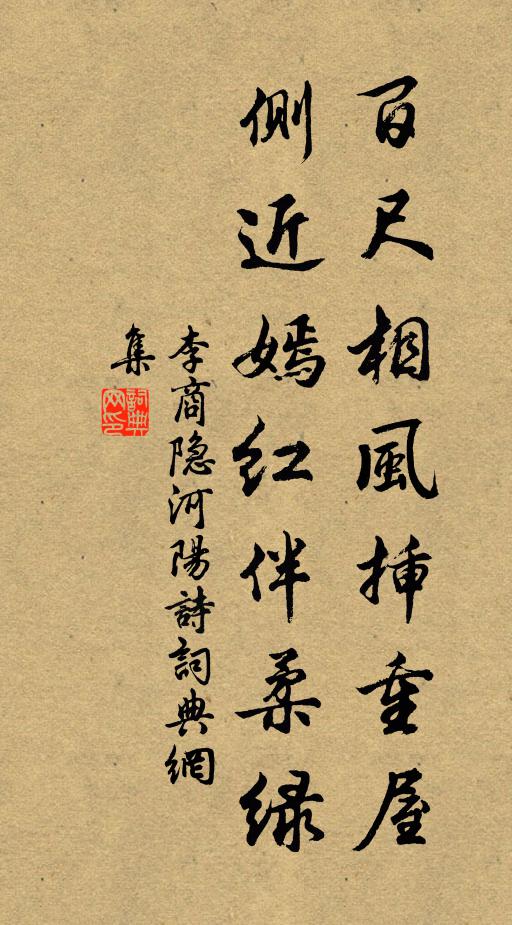 百尺相風插重屋
側近嫣紅伴柔綠
李商隐河陽詩詞典網
集
詞典网印